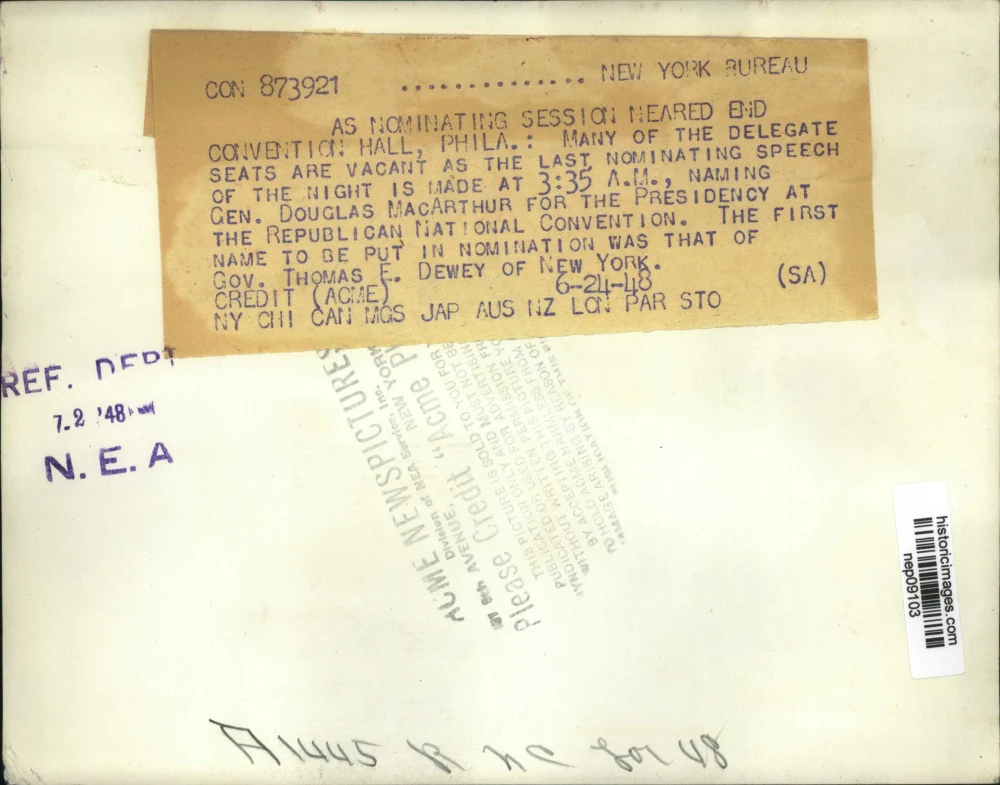 CON 873921 .............. NEW YORK BUREAU
AS NOMINATING SESSION NEARED END
CONVENTION HALL, PHILA.: MANY OF THE DELEGATE
SEATS ARE VACANT AS THE LAST NOMINATING SPEECH
OF THE NIGHT IS MADE AT 3:35 A.M., NAMING
GEN. DOUGLAS MACARTHUR FOR THE PRESIDENCY AT
THE REPUBLICAN NATIONAL CONVENTION. THE FIRST
NAME TO BE PUT IN NOMINATION WAS THAT OF
GOV. THOMAS E. DEWEY OF NEW YORK.
CREDIT (ACME) 6-24-48 (SA)
NY CHI CAN MGS JAP AUS NZ LON PAR STO
REF. DEPT
7.2 '48
N. E. A
ACME NEWSPICTURES
Division of NEA Service, Inc.
8th AVENUE, NEW YORK
Please Credit "Acme P
THIS PICTURE IS SOLD TO YOU FOR
PUBLICATION ONLY AND MUST NOT BE
SYNDICATED OR USED FOR ADVERTISING
WITHOUT WRITTEN PERMISSION FR
BY ACCEPTING THIS PICTURE YO
TO HOLD ACME HARMLESS FROM
DAMAGE ARISING BY REASON OF
THIS P
historicimages.com
nep09103
A1445
48